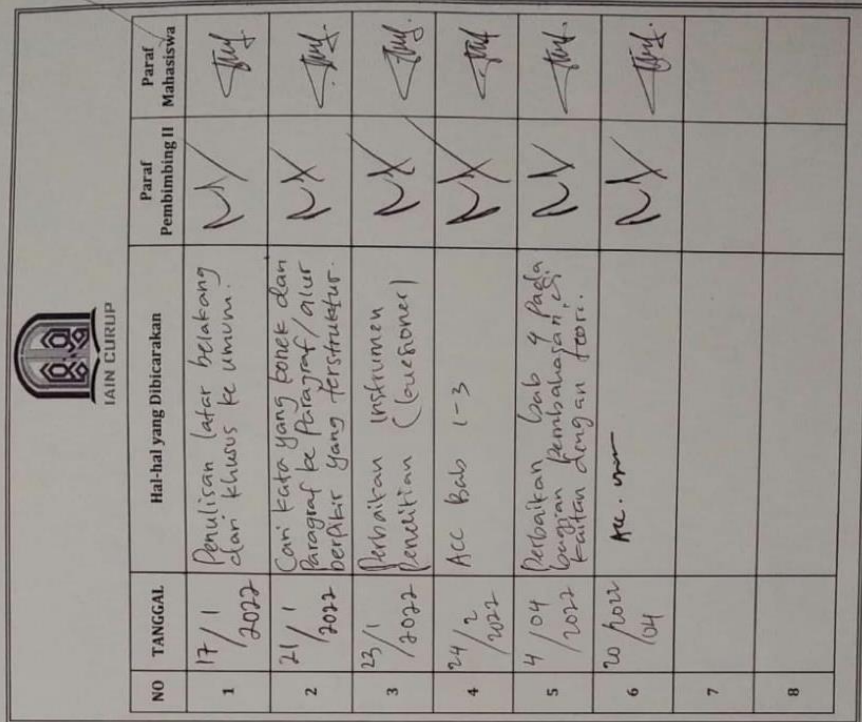 IAIN CURUP
NO TANGGAL Hal-hal yang Dibicarakan Paraf Pembimbing II Paraf Mahasiswa
1 17/1 2022 Penulisan latar belakang
dari khusus ke umum.
2 21/1 2022 Cari kata yang konek dan
Paragraf ke Paragraf/alur
berfikir yang terstruktur.
3 23/1 2022 Perbaikan Instrumen
Penelitian (Quesioner)
4 24/2 2022 ACC Bab 1-3
5 4/04 2022 Perbaikan bab 4 pada
bagian pembahasan,
kaitan dengan teori.
6 20/2022 04 Acc.
7
8